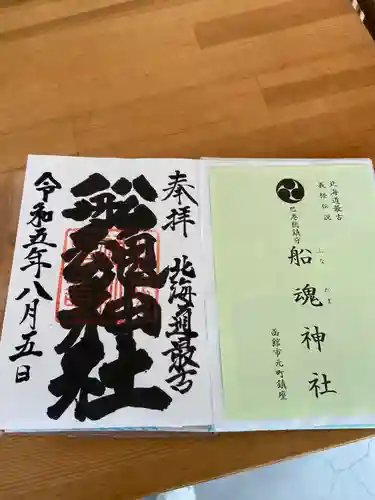 奉拝
北海道最古
船魂神社
令和五年八月五日
北海道最古
義経伝説
巴港総鎮守
船魂神社
ふなだま
函館市元町鎮座